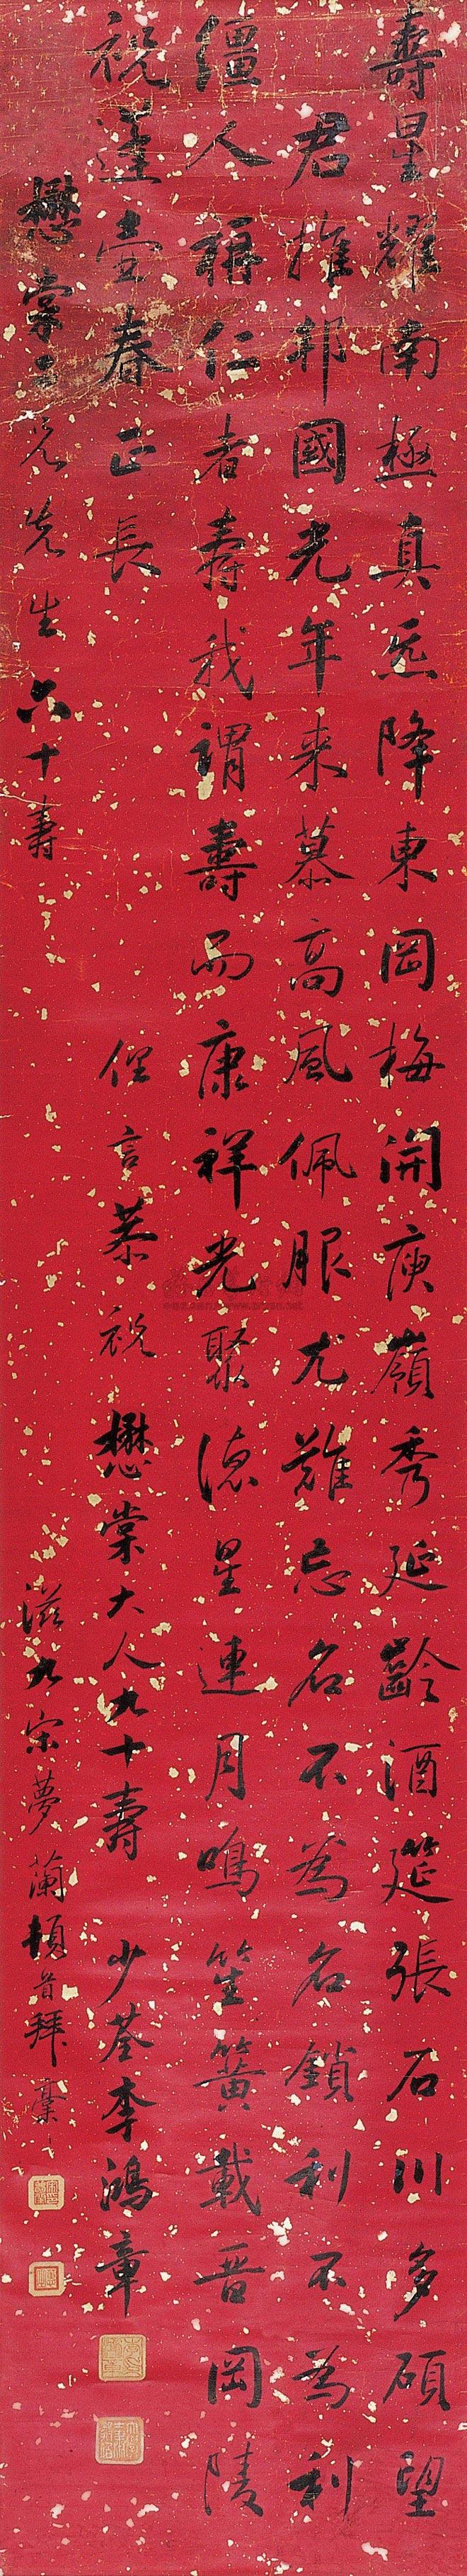 壽星耀南極真炁降東岡梅開庾嶺秀延齡酒筵張石川多碩望
君推邦國光年来慕高風佩服尤難忘名不為名鎖利不為利
繮人称仁者壽我謂壽而康祥光聚德星連月鳴笙簧載晋岡陵
祝蓬壺春正長
俚言恭祝 懋棠大人九十壽 少荃李鴻章
懋棠二兄先生六十壽
滋九宋夢蘭頓首拜稾